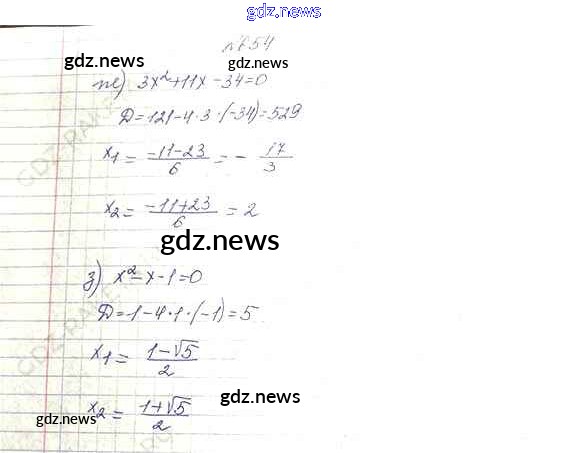 gdz.news
№654
gdz.news
gdz.news
ж) 3x²+11x-34=0
Д=121-4·3·(-34)=529
x₁= (-11-23)/6 = - 17/3
x₂= (-11+23)/6 = 2
gdz.news
з) x²-x-1=0
Д=1-4·1·(-1)=5
x₁= (1-√5)/2
x₂= (1+√5)/2
gdz.news
gdz.news